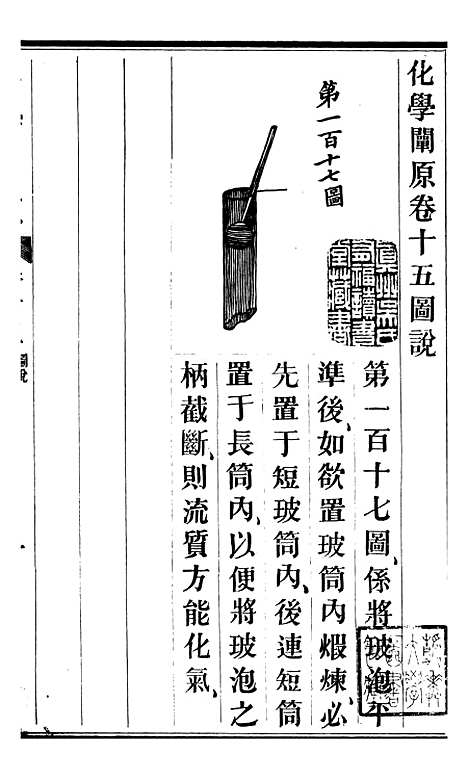 化學闡原卷十五圖說
第一百十七圖
第一百十七圖、係將玻泡平
準後、如欲置玻筒內煆煉、必
先置于短玻筒內、後連短筒
置于長筒內、以便將玻泡之
柄截斷、則流質方能化氣、
圖說